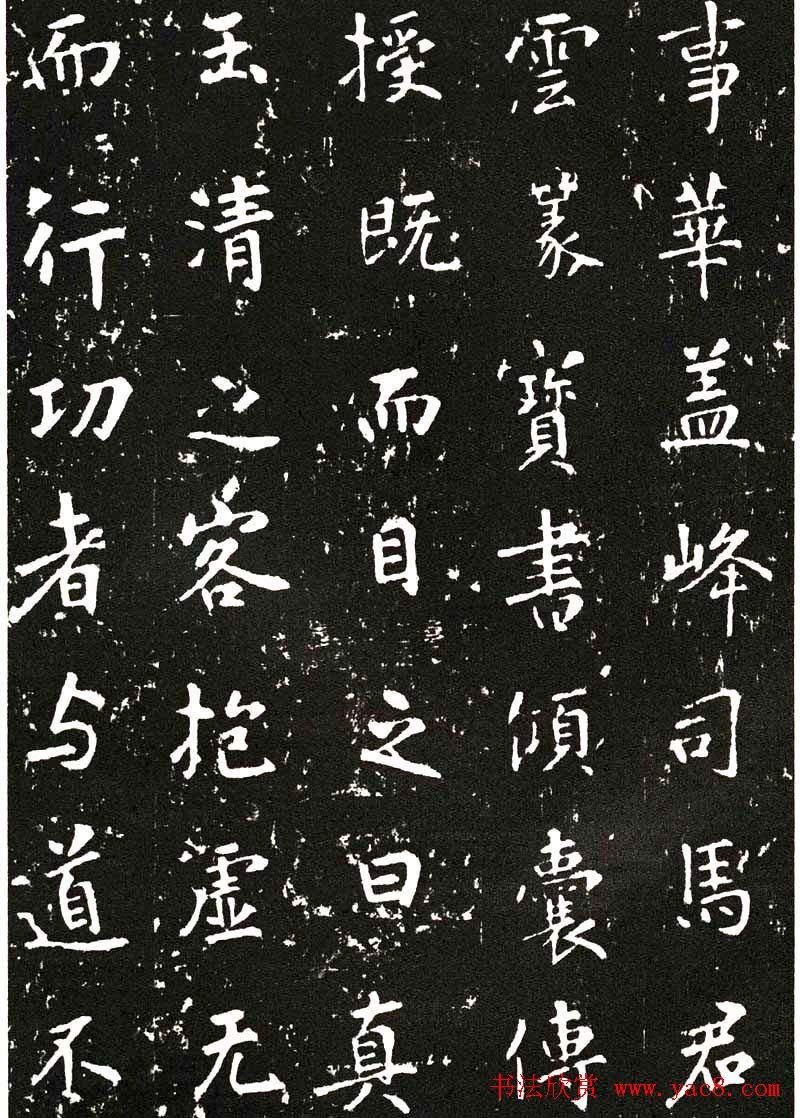 事華盖峰司馬君
雲篆寶書傾囊傳
授既而目之曰真
玉清之客抱虛无
而行功者与道不
书法欣赏 www.yac8.com